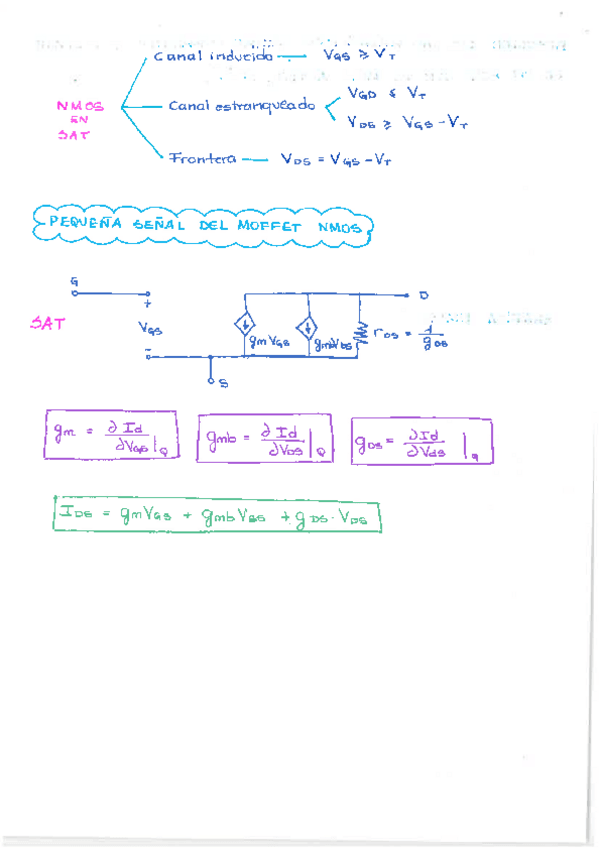 Canal inducido — VGS ≥ VT
NMOS EN SAT
Canal estranqueado
VGD ≤ VT
VDS ≥ VGS - VT
Frontera — VDS = VGS - VT
PEQUEÑA SEÑAL DEL MOFFET NMOS
SAT
G
+
VGS
-
gmVGS
gmbVBS
rDS = 1/gDS
D
S
gm = ∂Id/∂VGS |Q
gmb = ∂Id/∂VBS |Q
gDS = ∂Id/∂Vds |Q
IDS = gmVGS + gmbVBS + gDS · VDS